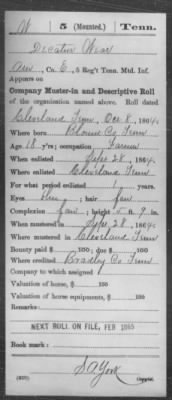 W 5 (Mounted.) Tenn.
Decatur Wear
, Co. E, 5 Reg't Tenn. Mtd. Inf.
Appears on
Company Muster-in and Descriptive Roll
of the organization named above. Roll dated
Cleveland Tenn, Oct 8, 1864.
Where born Blount Co Tenn
Age 18 y'rs; occupation Farmer
When enlisted Sept 28, 1864.
Where enlisted Cleveland Tenn
For what period enlisted 1 years.
Eyes ; hair
Complexion Fair; height 5 ft. 9 in.
When mustered in Sept. 28, 1864.
Where mustered in Cleveland Tenn
Bounty paid $ 100; due $ 100
Where credited Bradley Co Tenn
Company to which assigned
Valuation of horse, $ 100
Valuation of horse equipments, $ 100
Remarks:
NEXT ROLL ON FILE, FEB 1865
Book mark:
S A York
Copyist.